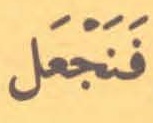 فَنَجْعَل